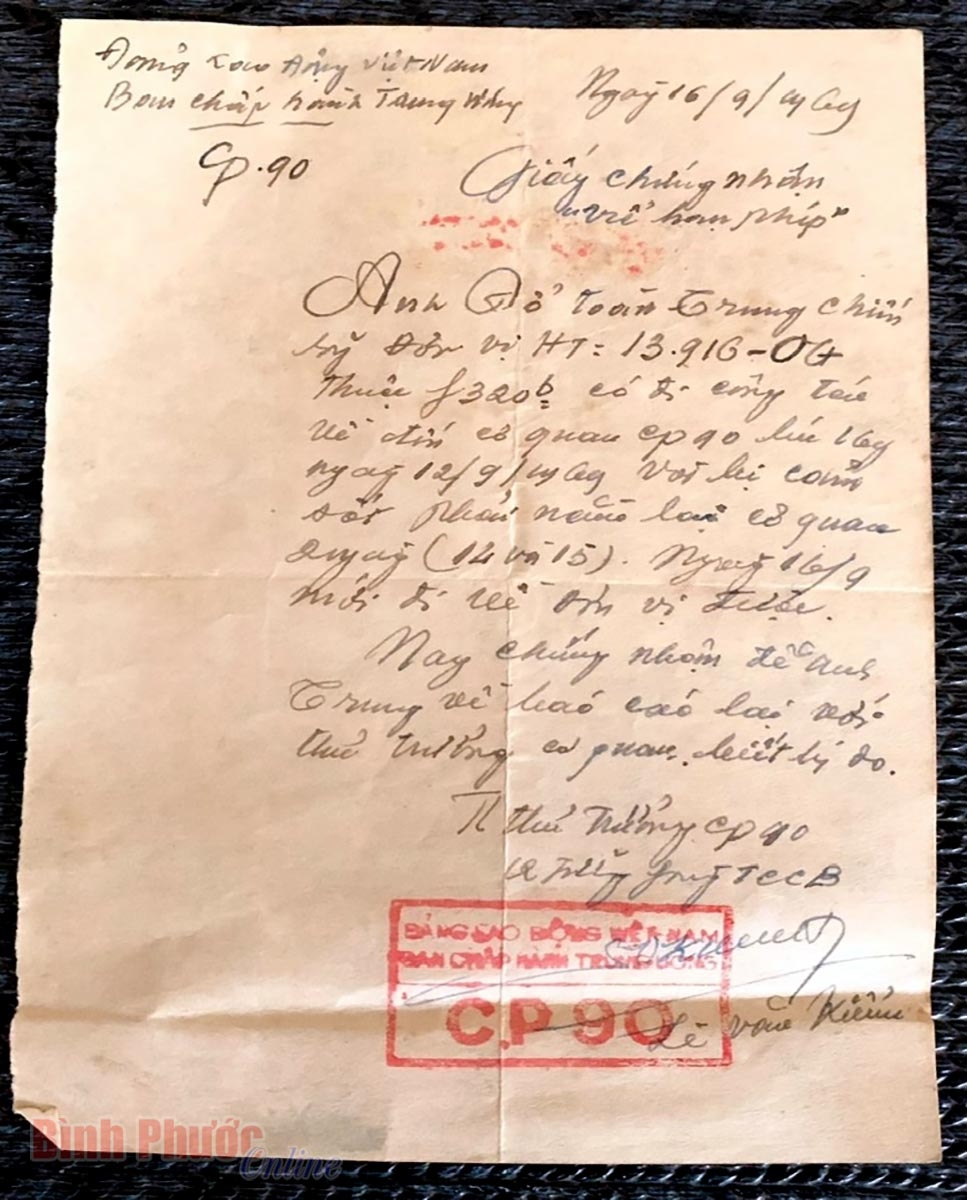 Đảng Lao động Việt Nam
Ban chấp hành Trung ương
Ngày 16/9/1969
CP.90
Giấy chứng nhận
"về hạn phép"
Anh Đỗ Toàn Trung chiến
sỹ đơn vị HT: 13.916-04
thuộc f320b có đi công tác
về đến cơ quan CP90 lúc 16g
ngày 12/9/1969 vì bị cảm
sốt phải nằm lại cơ quan
2 ngày (14 và 15). Ngày 16/9
mới đi về đơn vị được.
Nay chứng nhận để anh
Trung về báo cáo lại với
thủ trưởng cơ quan biết lý do.
Tl thủ trưởng CP90
TCCB
ĐẢNG LAO ĐỘNG VIỆT NAM
BAN CHẤP HÀNH TRUNG ƯƠNG
C.P 90
Lê Văn Kiểm
Bình Phước
Online